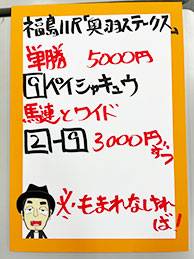 福島11R「奥羽ステークス」
単勝 5000円
9ペイシャキュウ
馬連とワイド
2-9 3000円ずつ
※もまれなければ!